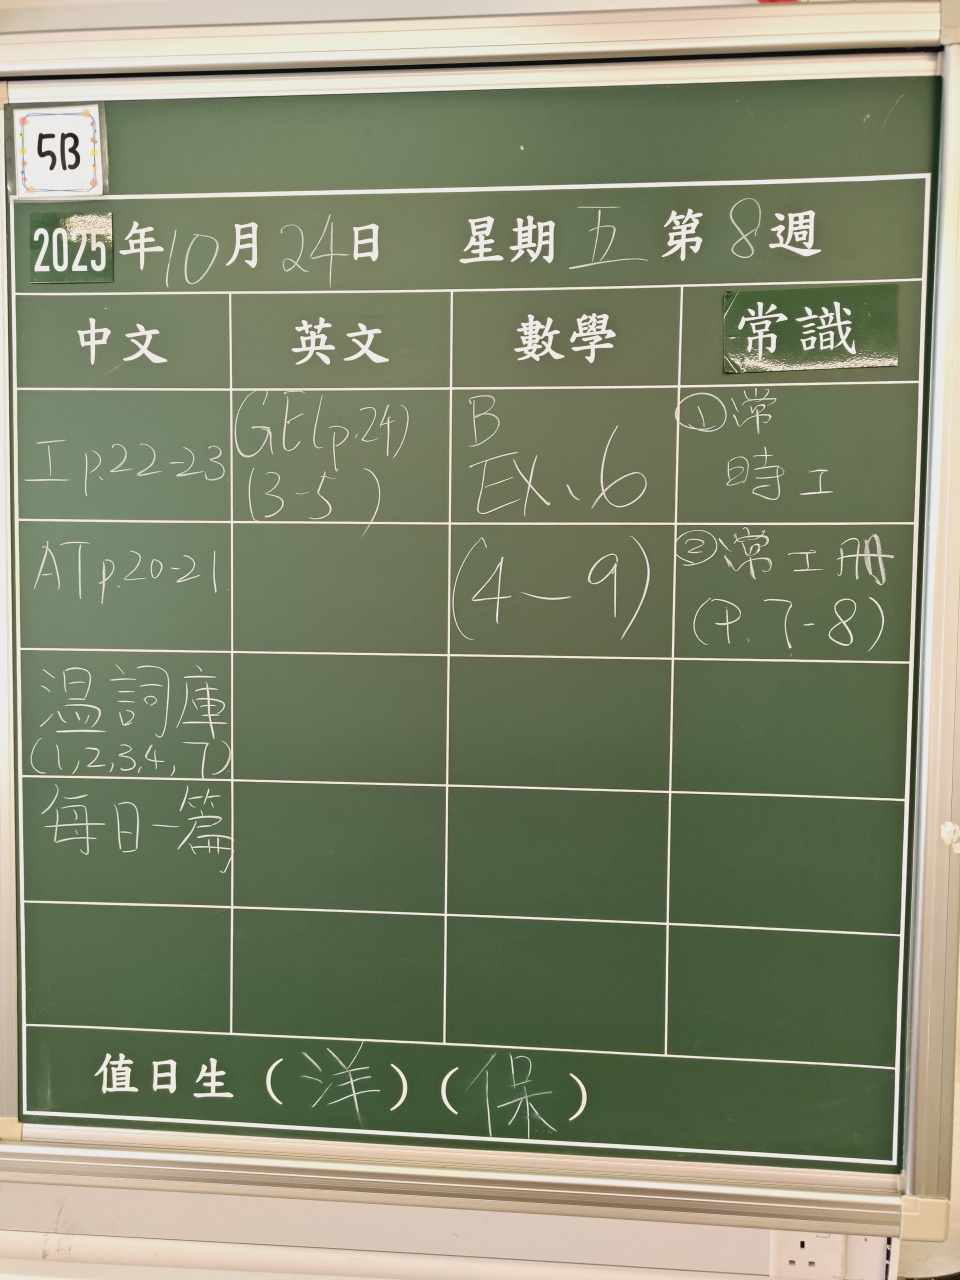 5B
2025年10月24日 星期五 第8週
中文 英文 數學 常識
工 p.22-23
GE(p.24)
(3-5)
B
EX、6
①常
時工
AT p.20-21
(4—9)
②常工册
(P. 7-8)
温詞庫
(1,2,3,4,7)
每日一篇
值日生（洋）（保）